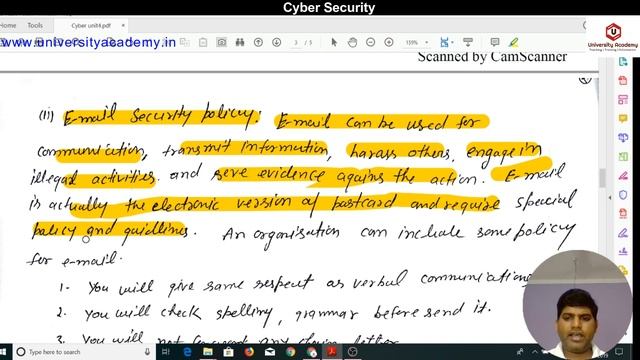 Cyber Security
Home Tools Cyber unit4.pdf
www.universityacademy.in
3 / 5
159%
University Academy
Scanned by CamScanner
(ii) E-mail Security policy: E-mail can be used for
communication, transmit information, harass others, engage in
illegal activities. and serve evidence agains the action. E-mail
is actually the electronic version of postcard and require special
policy and guidlines. An organisation can include some policy
for e-mail.
1- You will give same respect as verbal communication
2. You will check spelling, grammar before send it.
3. You will not forward any chain letter
Type here to search